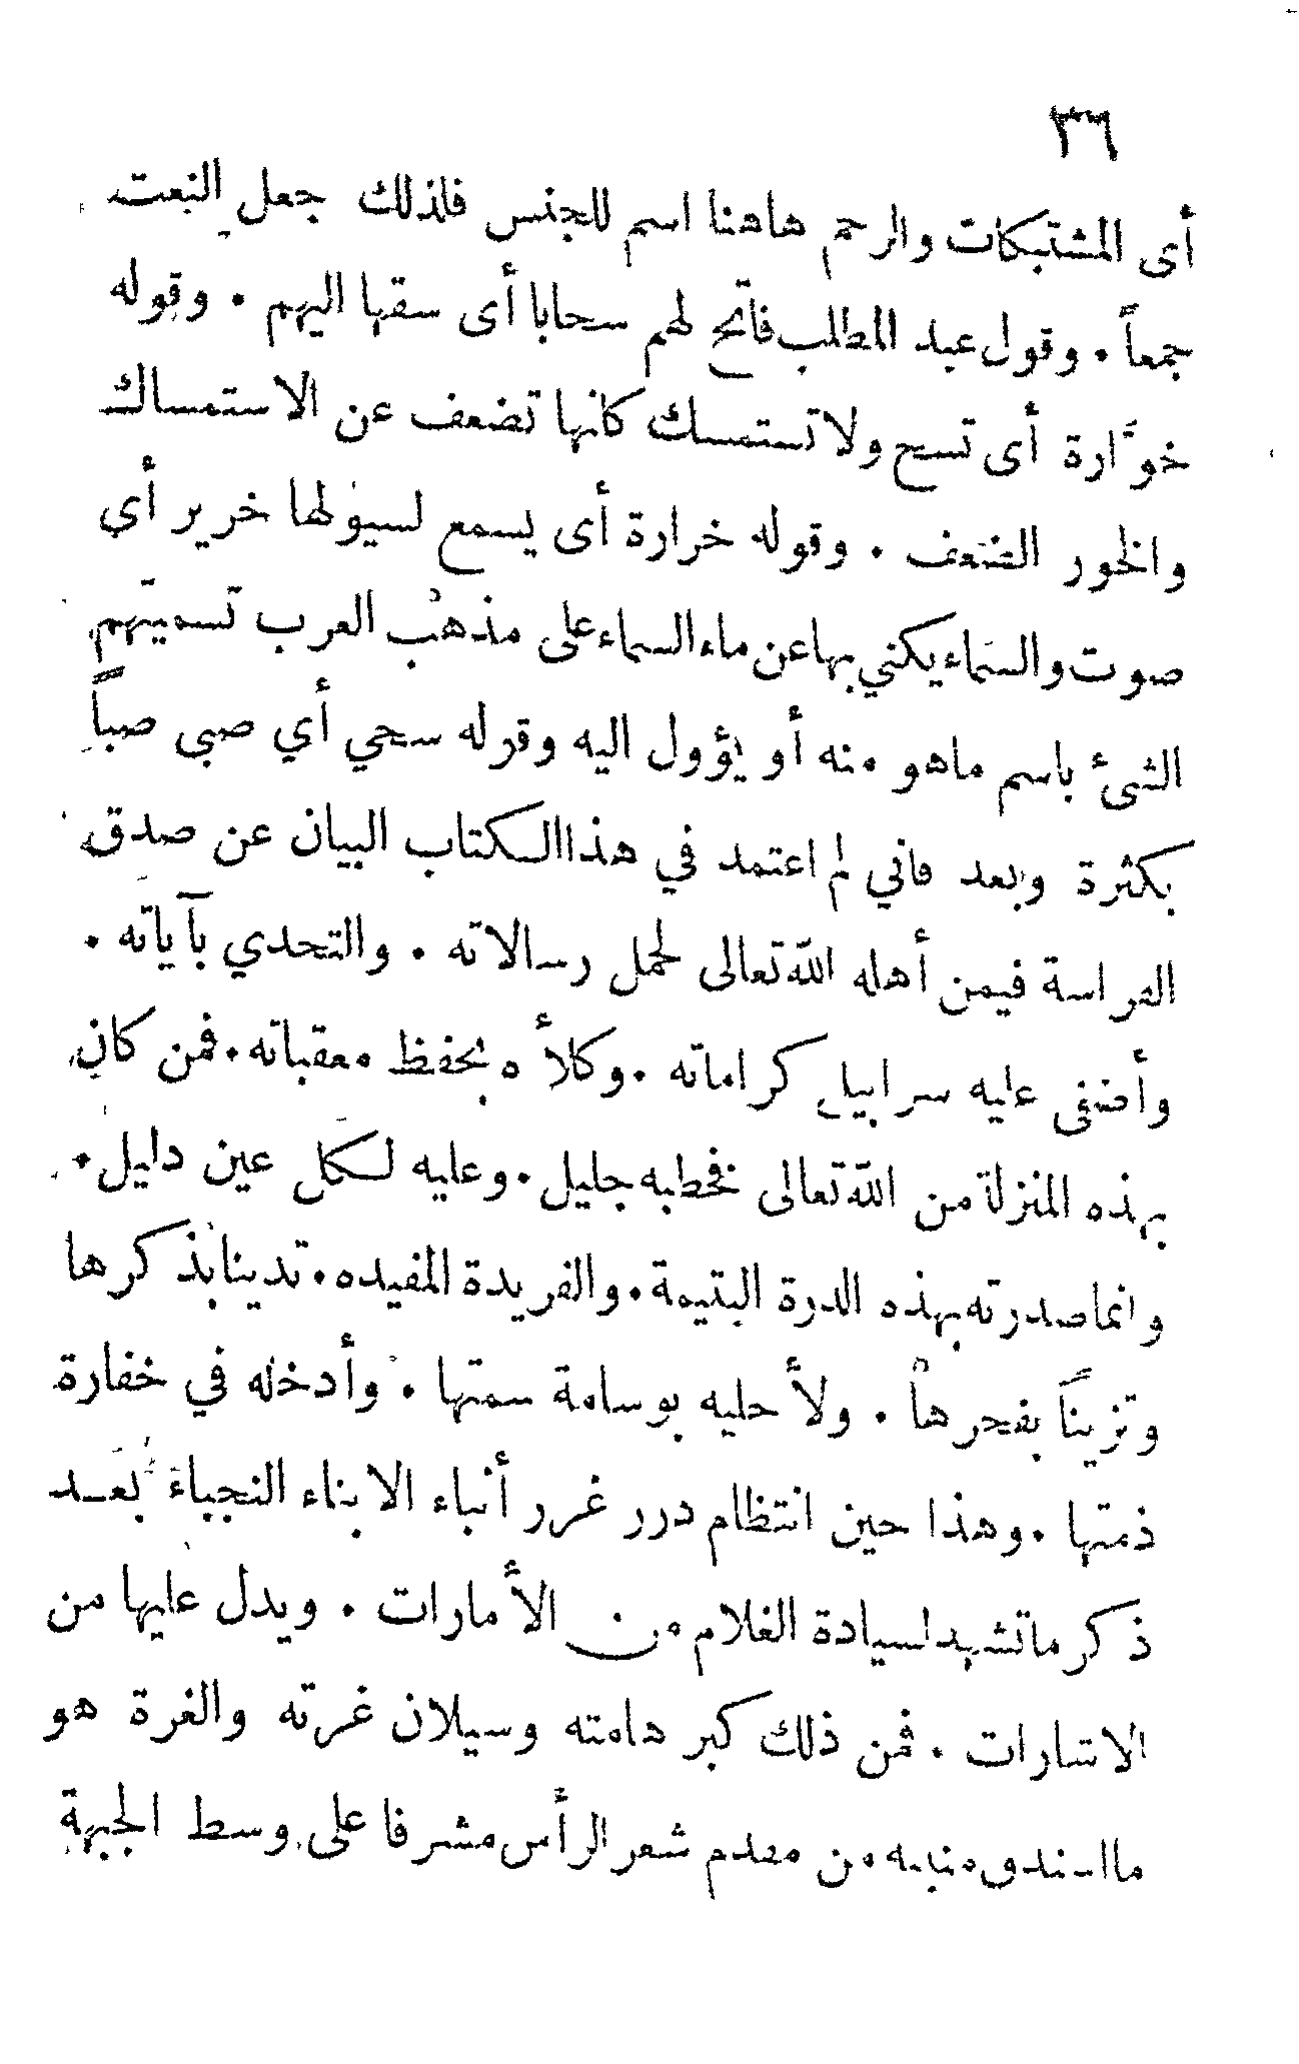 ٣٦
أى المشتبكات والرحم هاهنا اسم للجنس فلذلك جعل النعت
جمعاً . وقول عبد المطلب فأتح لهم سحابا أى سقها اليهم . وقوله
خوَّارة أى تسح ولا تستمسك كانها تضعف عن الاستمساك
والخور الضعف . وقوله خرارة أى يسمع لسيولها خرير أي
صوت والسماء يكني بها عن ماء السماء على مذهب العرب تسميتهم
الشئ باسم ماهو منه أو يؤول اليه وقوله سحي أي صبى صباً
بكثرة وبعد فاني لم اعتمد في هذا الكتاب البيان عن صدق
الفراسة فيمن أهله الله تعالى لحمل رسالاته . والتحدي بآياته .
وأضفى عليه سرابيل كراماته . وكلأه بحفظ معقباته . فمن كان
بهذه المنزلة من الله تعالى فخطبه جليل . وعليه لكل عين دليل .
وانما صدرته بهذه الدرة اليتيمة . والفريدة المفيده . تدينا بذكرها
وتزيناً بفخرها . ولأحليه بوسامة سمتها . وأدخله في خفارة
ذمتها . وهذا حين انتظام درر غرر أنباء الابناء النجباء بعد
ذكر ماتشهد لسيادة الغلام من الأمارات . ويدل عليها من
الاشارات . فمن ذلك كبر هامته وسيلان غرته والغرة هو
ما منه من مقدم شعر الرأس مشرفا على وسط الجبهة